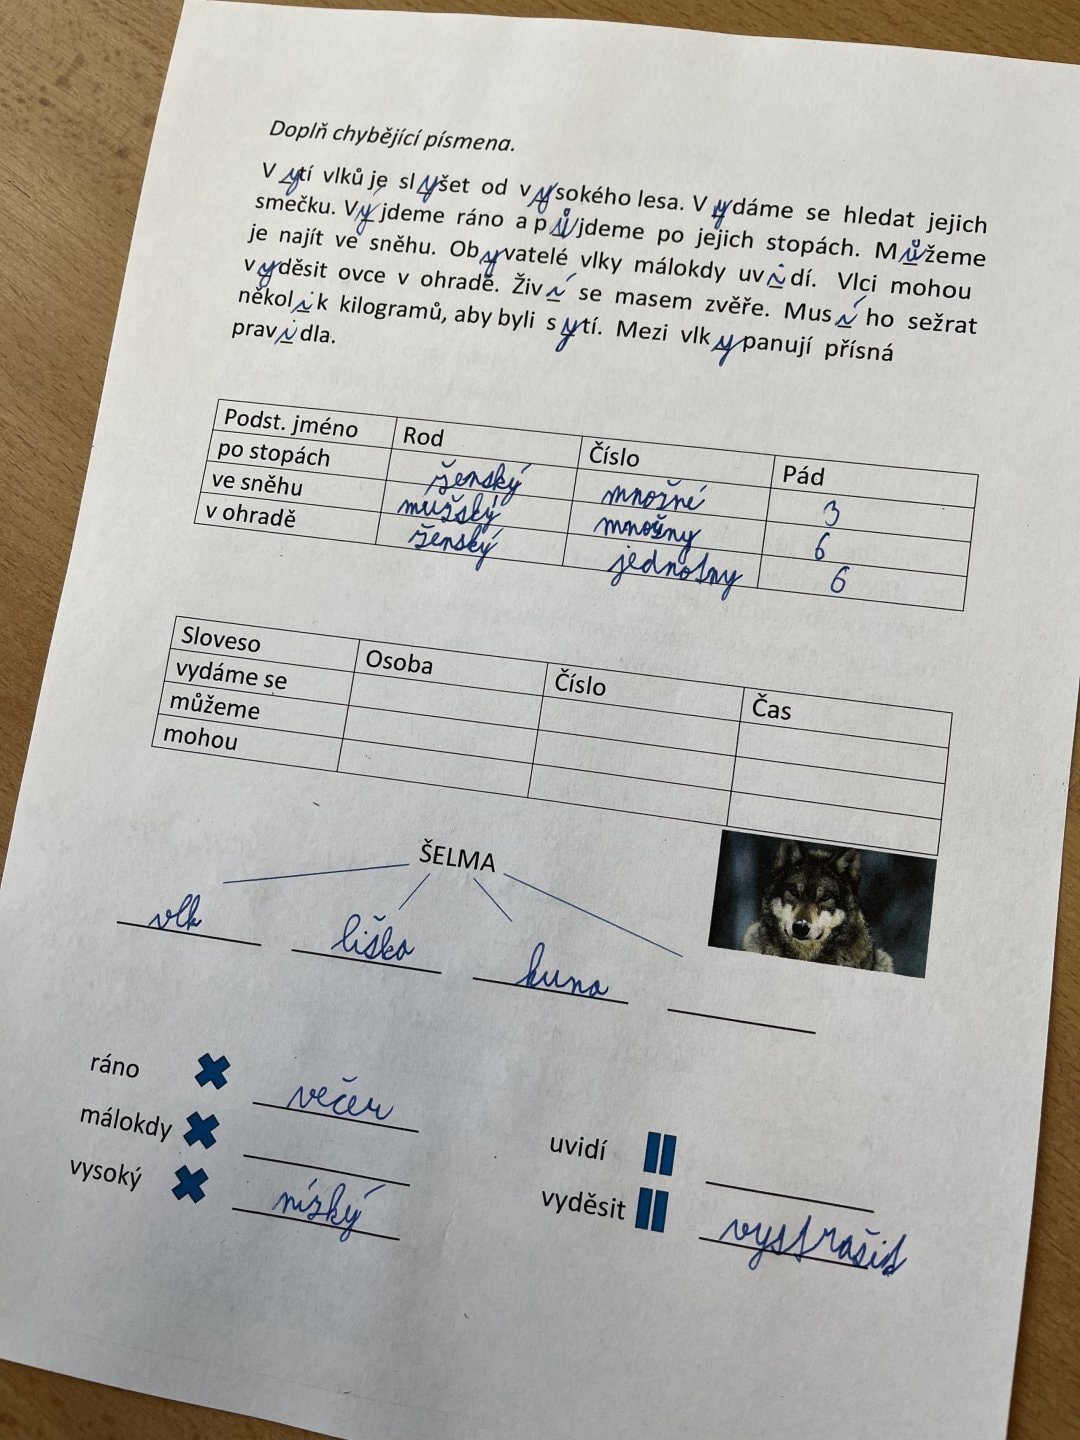 Doplň chybějící písmena.
Vytí vlků je slyšet od vysokého lesa. Vydáme se hledat jejich
smečku. Výjdeme ráno a půjdeme po jejich stopách. Můžeme
je najít ve sněhu. Obyvatelé vlky málokdy uvidí. Vlci mohou
vyděsit ovce v ohradě. Živí se masem zvěře. Musí ho sežrat
několik kilogramů, aby byli sytí. Mezi vlky panují přísná
pravidla.
Podst. jméno Rod Číslo Pád
po stopách ženský množné 3
ve sněhu mužský množny 6
v ohradě ženský jednotny 6
Sloveso Osoba Číslo Čas
vydáme se
můžeme
mohou
ŠELMA
vlk liška kuna
ráno večer
málokdy
vysoký nízký
uvidí
vyděsit vystrašit